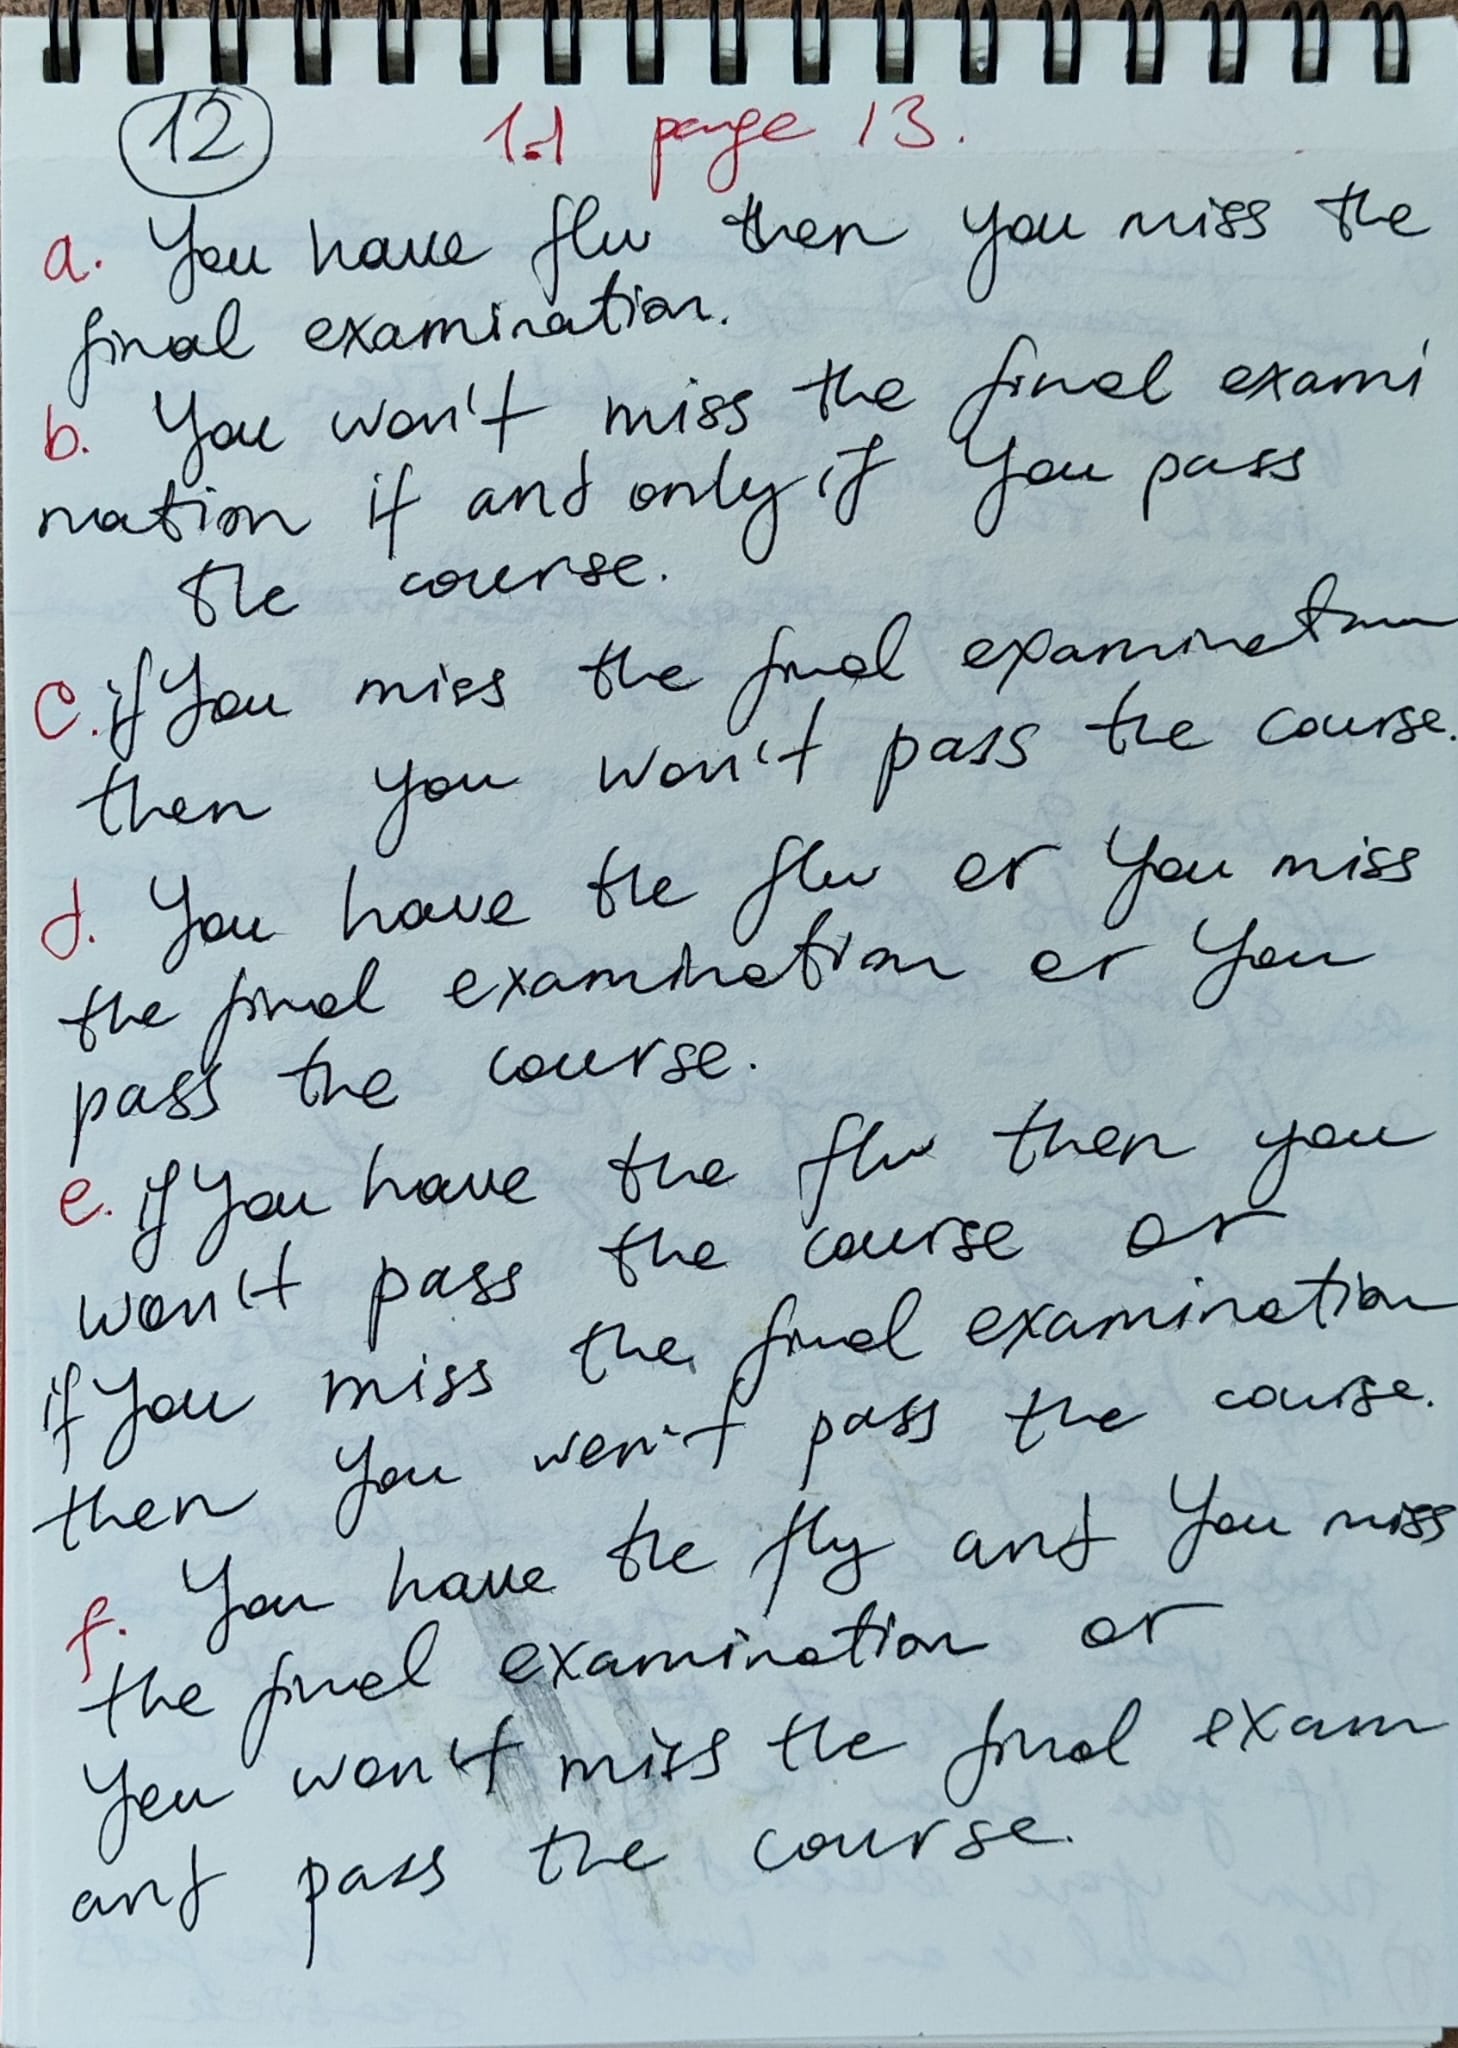 12 1.1 page 13.
a. You have flu then you miss the
final examination.
b. You won't miss the final exami
nation if and only if you pass
the course.
c. if You miss the final examination
then you won't pass the course.
d. You have the flu or You miss
the final examination or You
pass the course.
e. if You have the flu then you
won't pass the course or
if You miss the final examination
then You won't pass the course.
f. You have the fly and You miss
the final examination or
You won't miss the final exam
and pass the course.